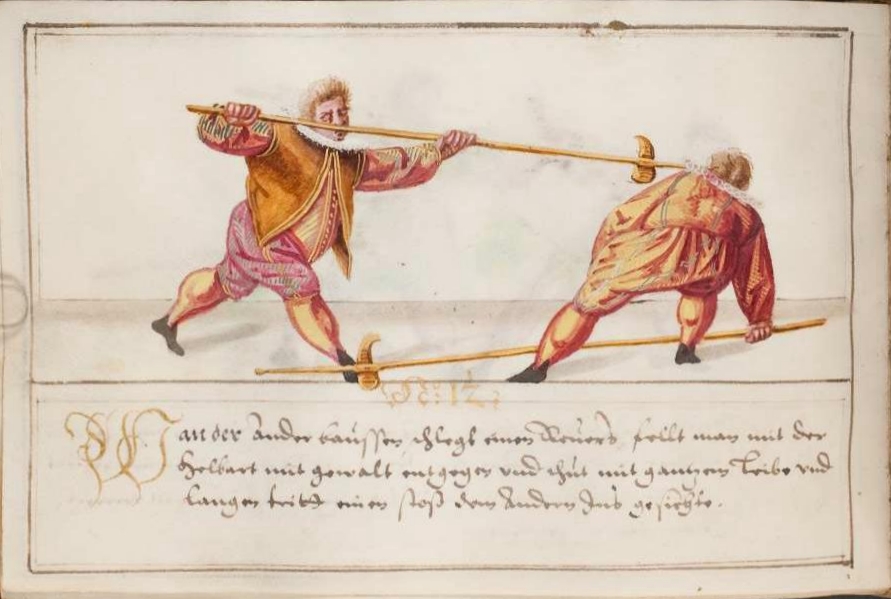 No: 12
Wan der Ander draussen schlegt einen Reuers, fellt man mit der
Helbart mit gewalt entgegen vnd thut mit gantzem Leibe vnd
langen tritt einen stoß dem Andern Ins gesichte.